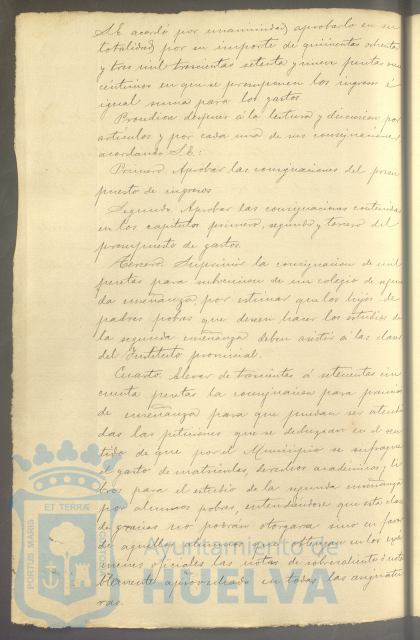 S.E. acordó por unanimidad aprobarlo en su
totalidad por en importe de quinientas ochenta
y tres mil trescientas setenta y nueve pesetas once
céntimos en que se presuponen los ingresos é
igual suma para los gastos.
Procediose después á la lectura y discusion por
artículos y por cada una de sus consignaciones
acordando S.E.:
Primero. Aprobar las consignaciones del presu
puesto de ingresos
Segundo. Aprobar las consignaciones contenidas
en los capítulos primero, segundo y tercero del
presupuesto de gastos.
Tercero. Suprimir la consignacion de mil
pesetas para subvencion de un colegio de segun
da enseñanza, por estimar que los hijos de
padres pobres que deseen hacer los estudios de
la segunda enseñanza deben asistir á las clases
del Instituto provincial.
Cuarto. Elevar de trescientas á setecientas cin
cuenta pesetas la consignacion para premios
de enseñanza para que puedan ser atendi
das las peticiones que se deduzcan en el sen
tido de que por el Municipio se sufrague
el gasto de matrículas, derechos académicos y li
bros para el estudio de la segunda enseñanza
por alumnos pobres, entendiéndose que esta clase
de gracias no podrán otorgarse sino en favor
de aquellos alumnos que obtengan en los exá
menes oficiales las notas de sobresaliente ó nota
blemente aprovechado en todas las asignatu
ras.
PORTUS MARIS
ET TERRÆ
Ayuntamiento de
HUELVA